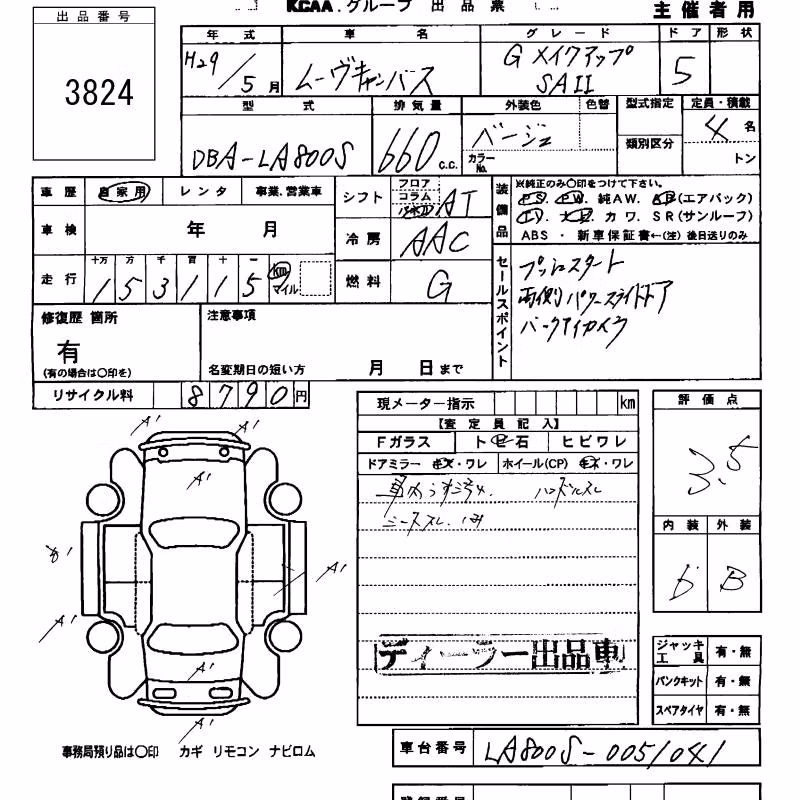 KCAA.グループ 出品票
主催者用
出品番号
3824
年式 車名 グレード ドア 形状
H29/5月 ムーヴキャンバス G メイクアップ SAII 5
型式 排気量 外装色 色替 型式指定 定員・積載
DBA-LA800S 660 c.c. ベージュ カラーNo. 類別区分 4名
トン
車歴 自家用 レンタ 事業.営業車
シフト フロア コラム インパネ AT
装備品 ※純正のみ〇印をつけて下さい。
PS. PW. 純AW. AB(エアバック)
TV. ナビ. カワ. SR(サンルーフ)
ABS・新車保証書←(注)後日送りのみ
車検 年 月
冷房 AAC
走行 十万 万 千 百 十 一 km マイル
1 5 3 1 1 5
燃料 G
セールスポイント
プッシュスタート
両側パワースライドドア
バックアイカメラ
修復歴 箇所
有
(有の場合は〇印を)
注意事項
名変期日の短い方 月 日まで
リサイクル料 8790円
現メーター指示 km
【査定員記入】
Fガラス ト ビ 石 ヒビワレ
ドアミラー キズ・ワレ ホイール(CP) キズ・ワレ
車内うすごみ. ハンドルスレ
シートスレ.
評価点
3.5
内装 外装
B
A1
A1
A1
A1
A1
A1
A1
ディーラー出品車
ジャッキ工具 有・無
パンクキット 有・無
スペアタイヤ 有・無
事務局預り品は〇印 カギ リモコン ナビロム
車台番号 LA800S-0051041